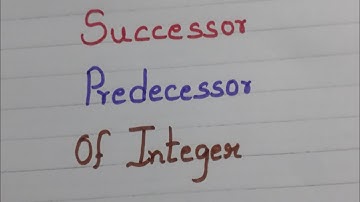 Successor
Predecessor
Of Integer